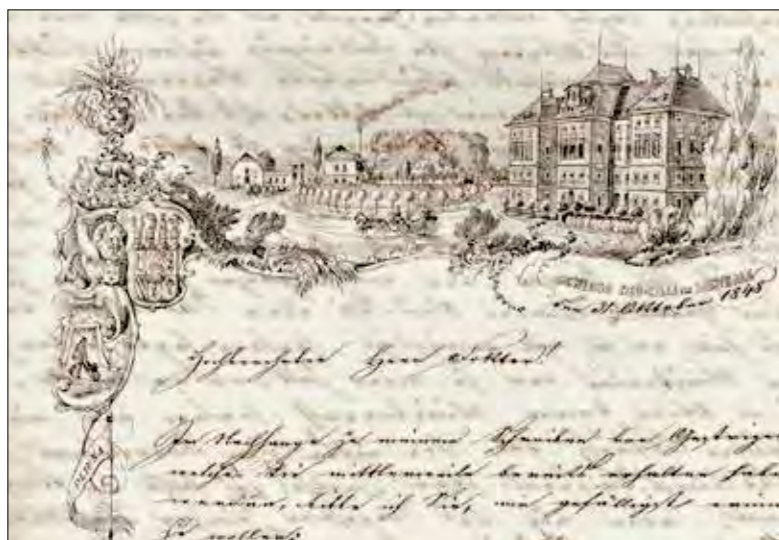 den 31. Oktober 1848
Hochverehrter Herr Doktor!
Im Nachhange zu meinem Schreiben von Gestrigen
welches Sie mittlerweile bereits erhalten habe
werden, bitte ich Sie, mir gefälligst
zu wollen: